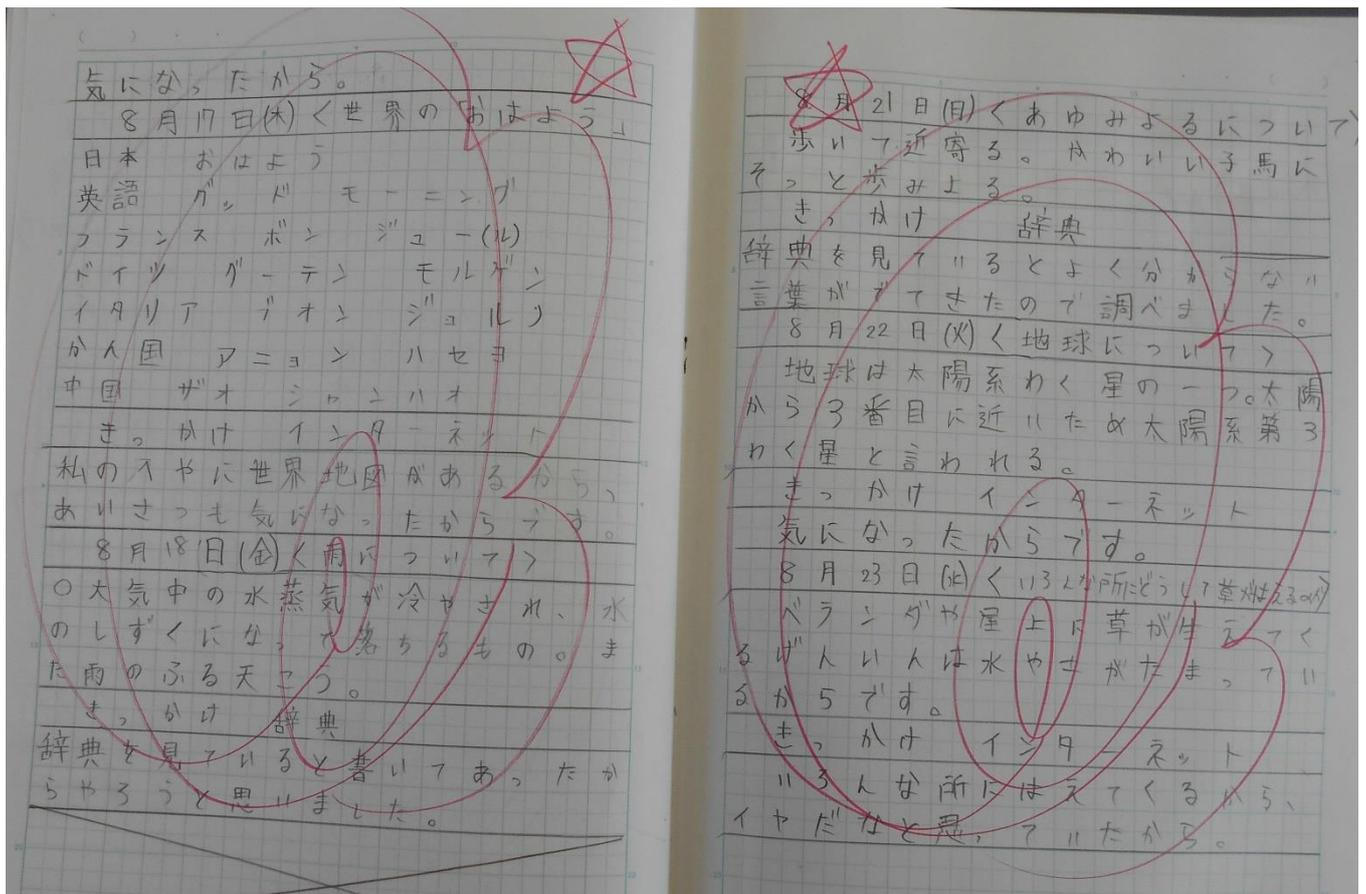 気になったから。
8月17日(木)<世界の「おはよう」
日本 おはよう
英語 グッド モーニング
フランス ボン ジュー(ル)
ドイツ グーテン モルゲン
イタリア ブオン ジョルノ
かん国 アニョン ハセヨ
中国 ザオ シャンハオ
きっかけ インターネット
私のへやに世界地図があるから、
あいさつも気になったからです。
8月18日(金)<雨について>
○大気中の水蒸気が冷やされ、水
のしずくになって落ちるもの。ま
た雨のふる天こう。
きっかけ 辞典
辞典を見ていると書いてあったか
らやろうと思いました。
8月21日(月)<あゆみよるについて>
歩いて近寄る。かわいい子馬に
そっと歩み上る。
きっかけ 辞典
辞典を見ているとよく分からない
言葉がでてきたので調べました。
8月22日(火)<地球について>
地球は太陽系わく星の一つ。太陽
から3番目に近いため太陽系第3
わく星と言われる。
きっかけ インターネット
気になったからです。
8月23日(水)<いろんな所にどうして草がはえるのか>
ベランダや屋上に草が生えてく
るげんいんは水やさがたまってい
るからです。
きっかけ インターネット
いろんな所にはえてくるから、
イヤだなと思っていたから。